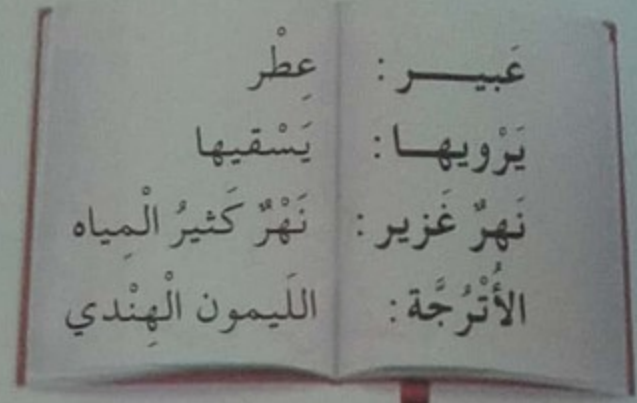 عَبيـــر : عِطْر
يَرْويهـــا : يَسْقيها
نَهرٌ غَزير : نَهْرٌ كَثيرُ الْمِياه
الأُتْرُجَّة : اللَيمون الْهِنْدي